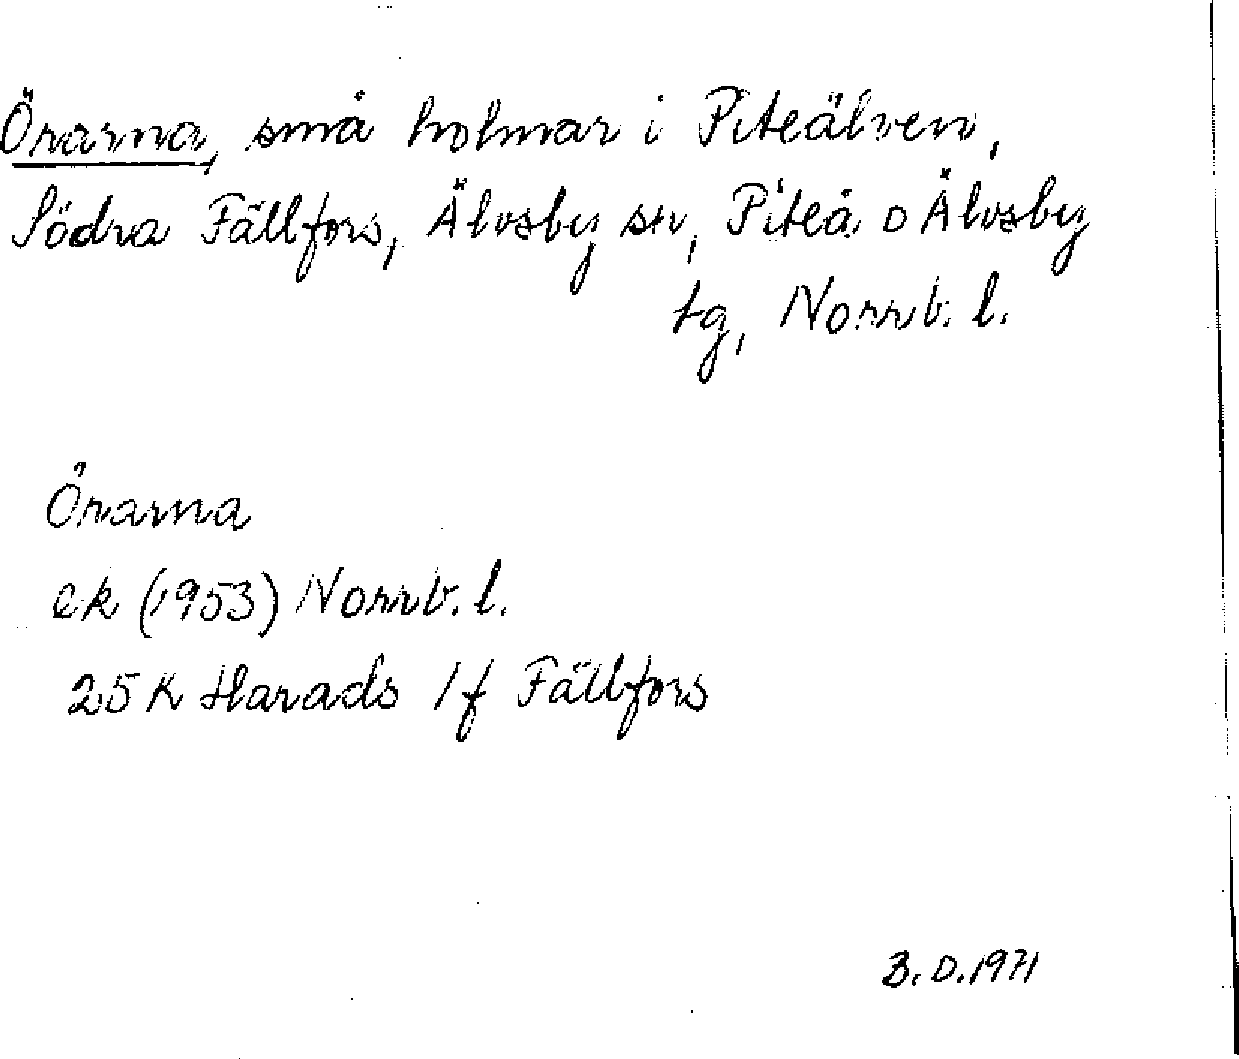 Örarna, små holmar i Piteälven,
Södra Fällfors, Älvsby sn, Piteå o Älvsby
tg, Norrb. l.
Örarna
ek (1953) Norrb. l.
25 K Harads 1f Fällfors
B.D. 1971